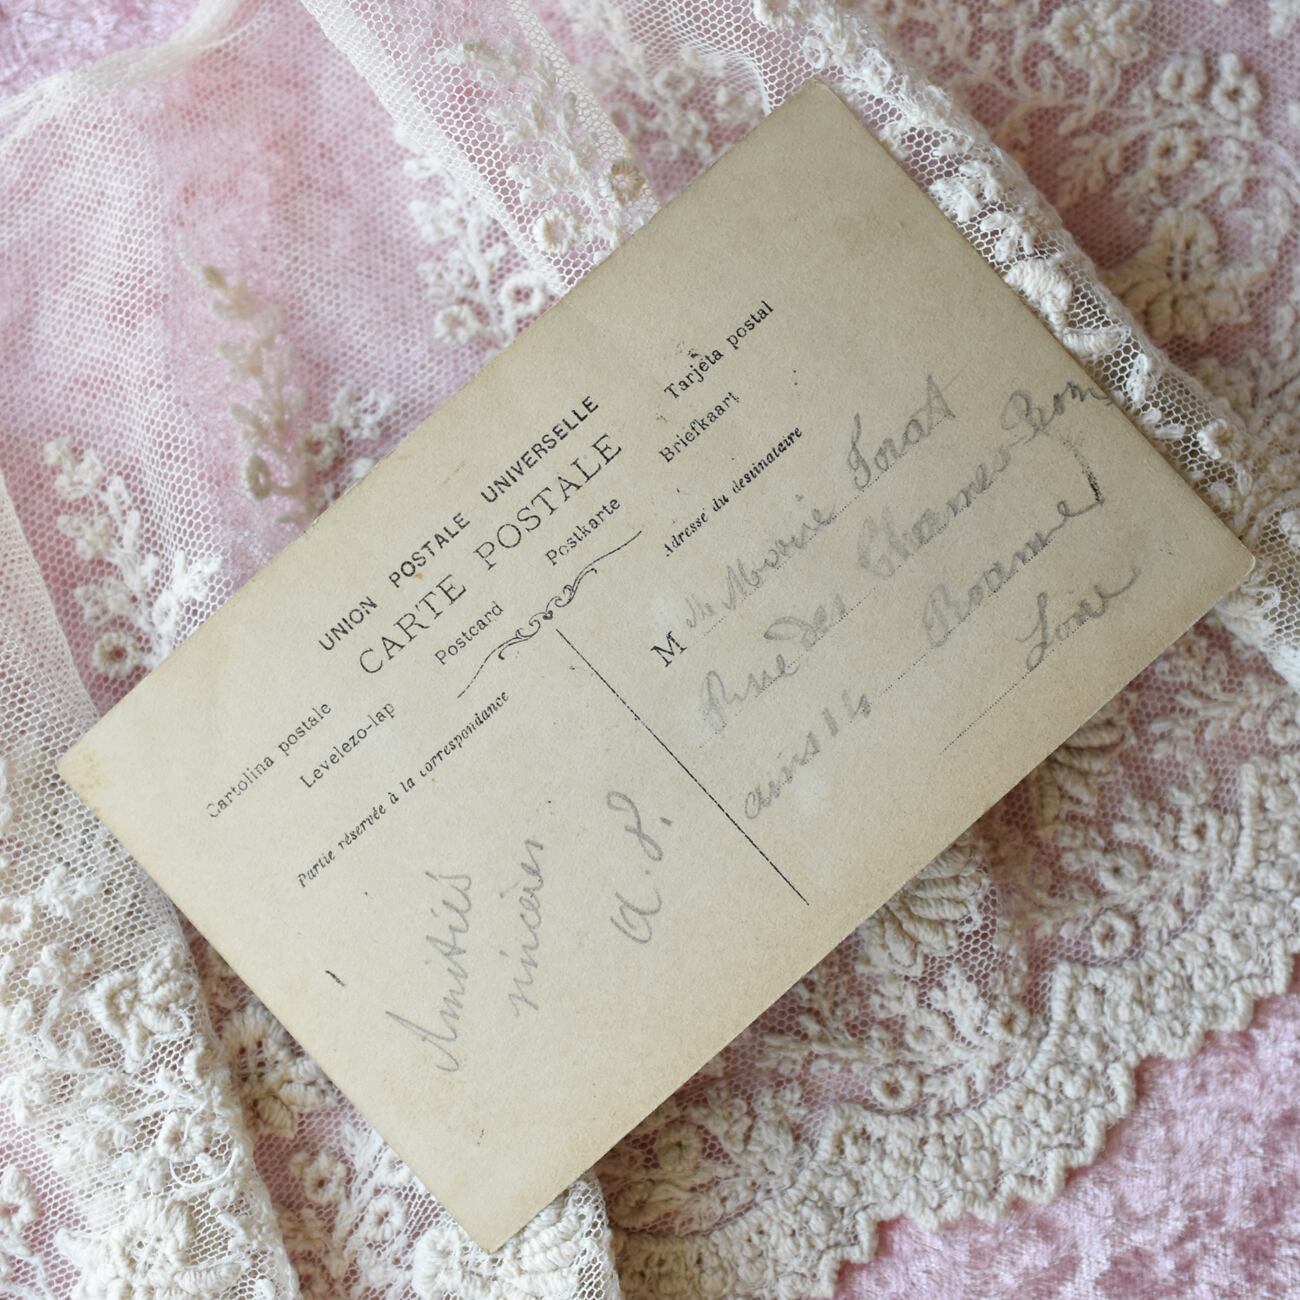 UNION POSTALE UNIVERSELLE
CARTE POSTALE
Cartolina postale Postcard Postkarte Tarjeta postal
Levelezo-lap Briefkaart
Partie réservée à la correspondance
Adresse du destinataire
Amitiés
sincères
A. P.
M lle Marie
Rue des
14 Roanne
Loire